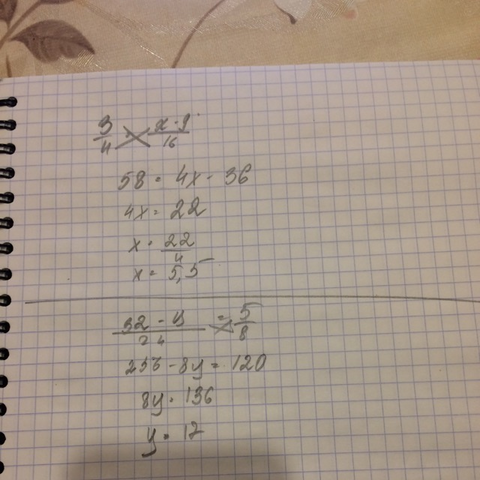 3/4 = x-9/16
58 = 4x - 36
4x = 22
x = 22/4
x = 5,5
32 - y/24 = 5/8
256 - 8y = 120
8y = 136
y = 17